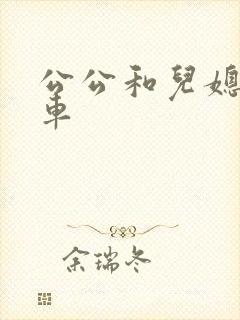 公公和兒媳
車
余瑞冬